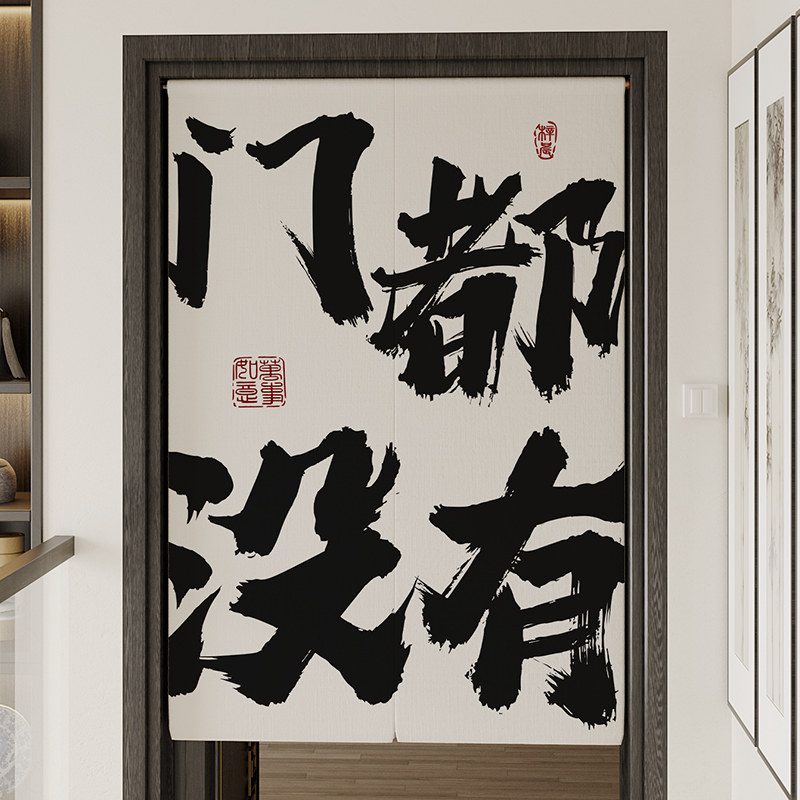 门都
没有
梓晨
萬事
如意